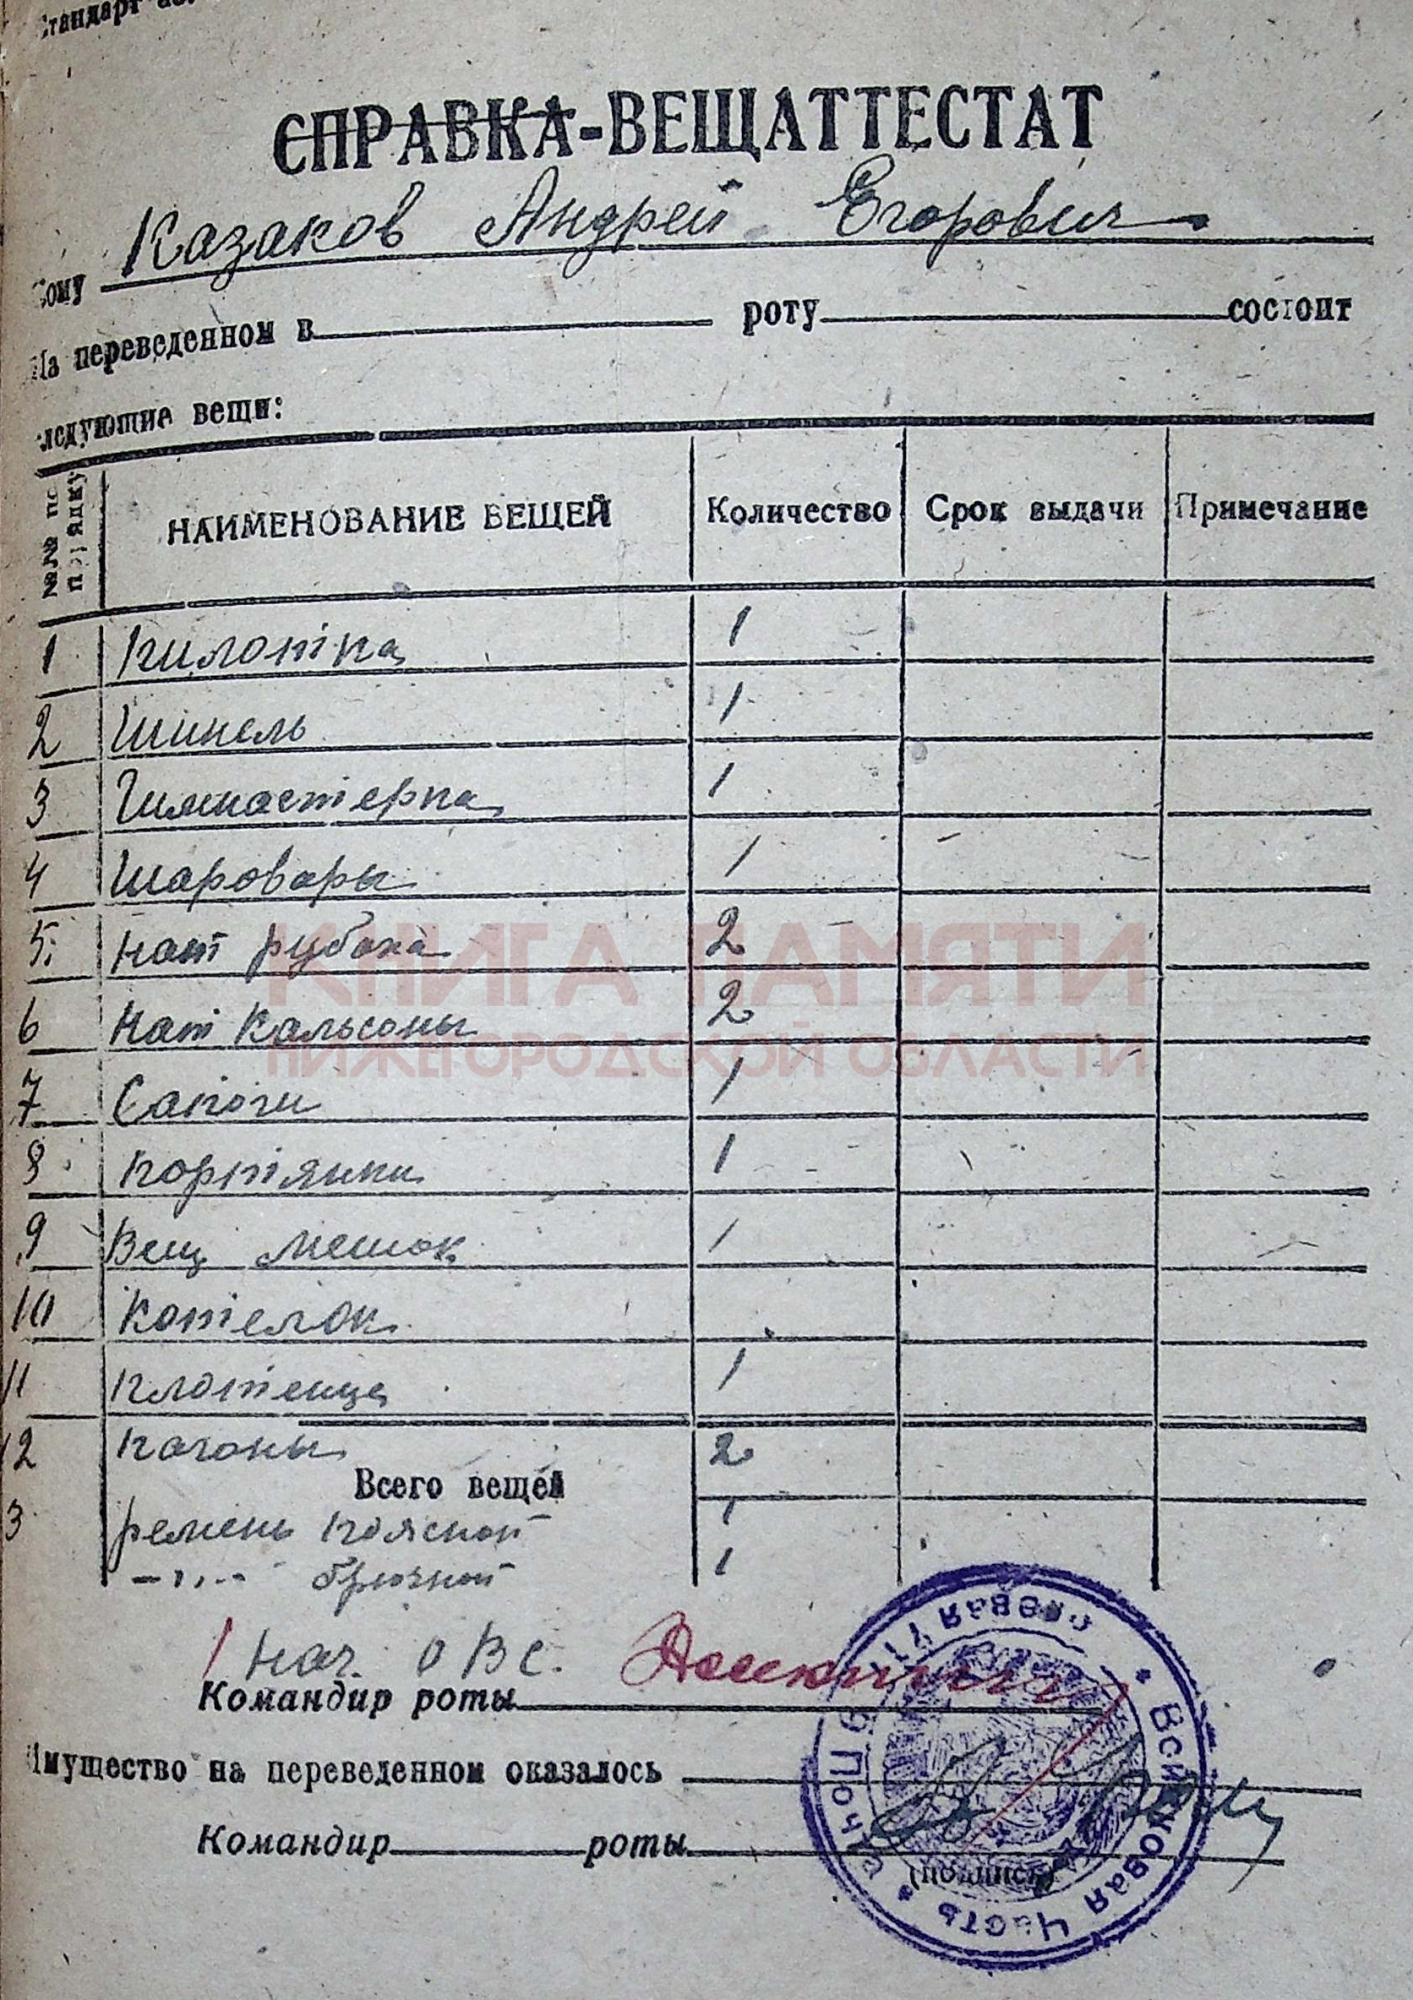 Стандарт
СПРАВКА-ВЕЩАТТЕСТАТ
Кому Казаков Андрей Егорович
На переведенном в роту состоит
следующие вещи:
№№ по порядку НАИМЕНОВАНИЕ ВЕЩЕЙ Количество Срок выдачи Примечание
1 пилотка 1
2 Шинель 1
3 Гимнастерка 1
4 Шаровары 1
5. нат рубаха 2
6 нат кальсоны 2
7 Сапоги 1
8 портянки 1
9 Вещ мешок 1
10 Котелок
11 плотенце 1
12 погоны 2
Всего вещей
3 ремень поясной 1
-„- брючной 1
КНИГА ПАМЯТИ
НИЖЕГОРОДСКОЙ ОБЛАСТИ
1 нач. ОВС.
Командир роты
Имущество на переведенном оказалось
Командир роты
(подпись)
Полевая Почта * Воинская Часть *